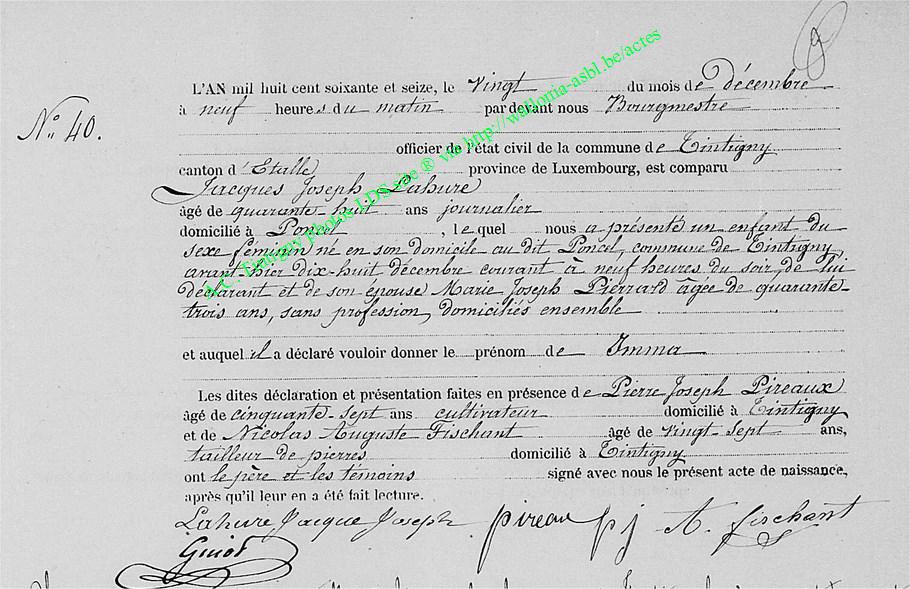 L'AN mil huit cent soixante et seize, le vingt du mois de décembre
à neuf heures du matin par devant nous Bourgmestre
N° 40.
officier de l'état civil de la commune de Tintigny
canton d'Etalle province de Luxembourg, est comparu
Jacques Joseph Lahure
âgé de quarante-huit ans journalier
domicilié à Poncel, lequel nous a présenté un enfant du
sexe féminin né en son domicile au dit Poncel, commune de Tintigny
avant-hier dix-huit décembre courant à neuf heures du soir, de lui
déclarant et de son épouse Marie Joseph Pierrard agée de quarante-
trois ans, sans profession, domiciliés ensemble
et auquel il a déclaré vouloir donner le prénom de Imma
Les dites déclaration et présentation faites en présence de Pierre Joseph Pireaux
âgé de cinquante-sept ans cultivateur domicilié à Tintigny
et de Nicolas Auguste Fischant âgé de vingt-sept ans,
tailleur de pierres domicilié à Tintigny
ont le père et les témoins signé avec nous le présent acte de naissance,
après qu'il leur en a été fait lecture.
Lahure Jacque Joseph pireau pj A. fischant
Guiot
A.C. Tintigny Photos LDS site ® via http://wallonia-asbl.be/actes